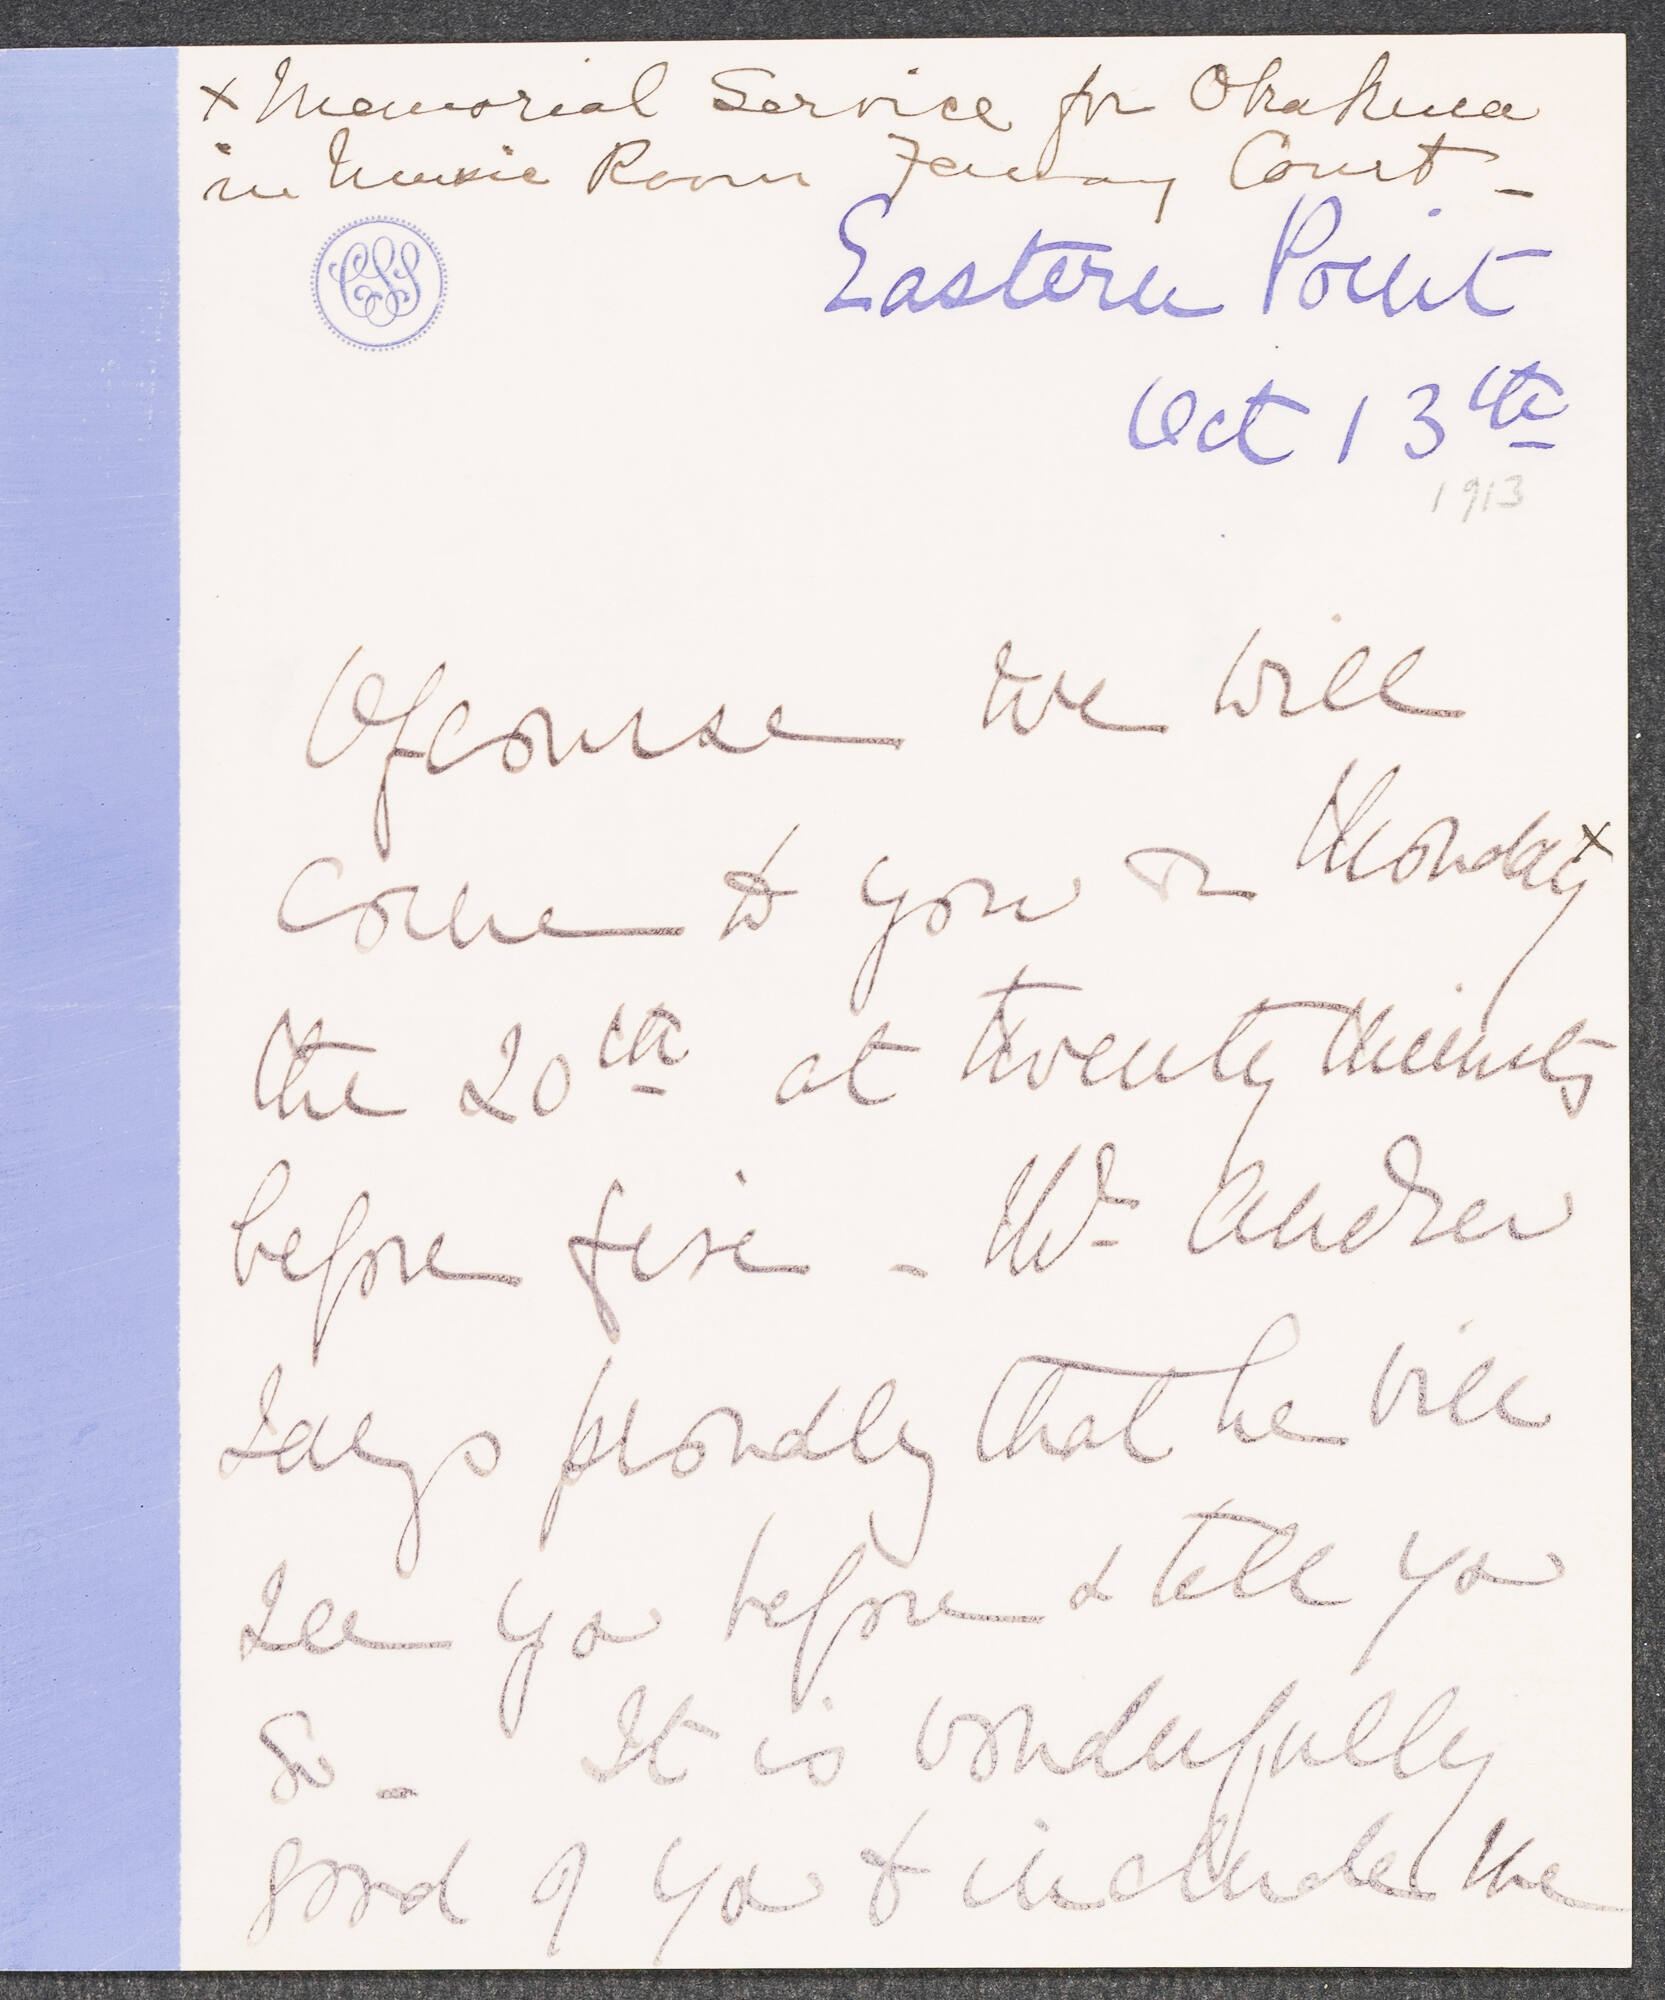 x Memorial Service for Okakura
in Music Room Fenway Court -
CSS
Eastern Point
Oct 13th
1913
Ofcourse we will
come to you on Monday x
the 20th at twenty minutes
before five - Mr Andrew
says proudly that he will
see you before & tell you
so - It is wonderfully
good of you to include me